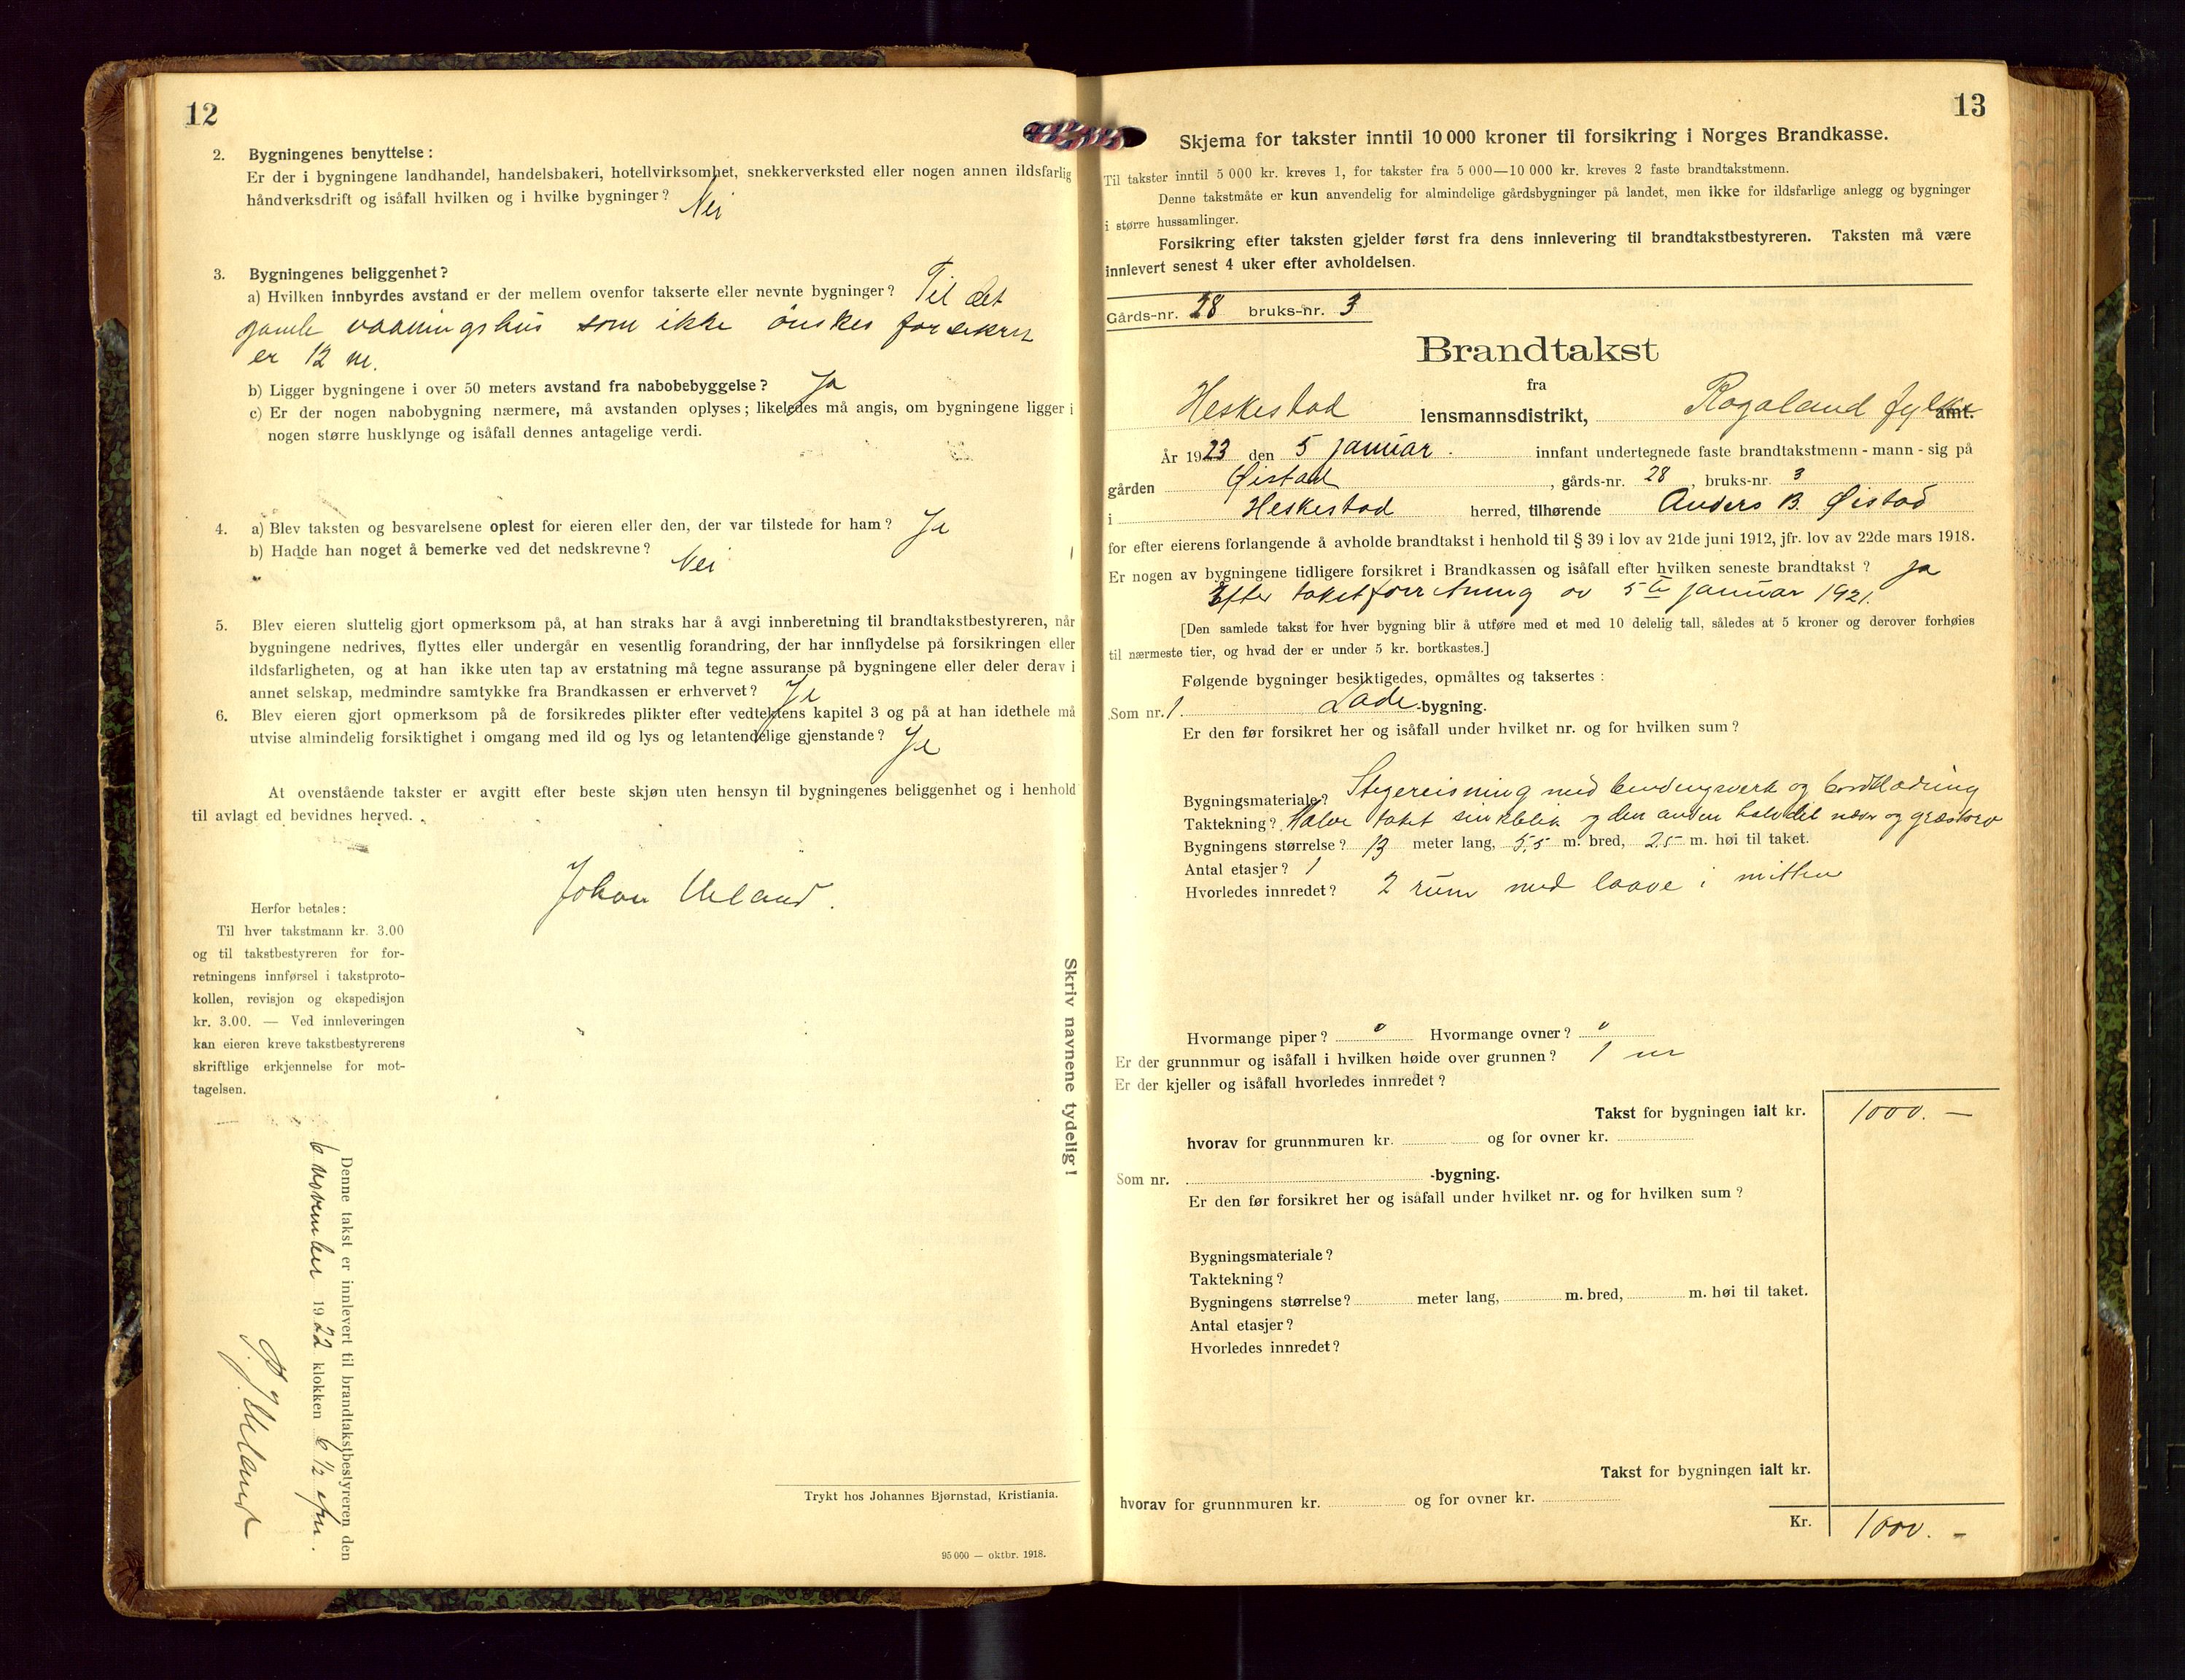 12
2. Bygningenes benyttelse :
Er der i bygningene landhandel, handelsbakeri, hotellvirksomhet, snekkerverksted eller nogen annen ildsfarlig
håndverksdrift og isåfall hvilken og i hvilke bygninger? Nei
3. Bygningenes beliggenhet?
a) Hvilken innbyrdes avstand er der mellem ovenfor takserte eller nevnte bygninger? Til det
gamle vaaningshus som ikke önskes forsikret
er 12 m.
b) Ligger bygningene i over 50 meters avstand fra nabobebyggelse? Ja
c) Er der nogen nabobygning nærmere, må avstanden oplyses; likeledes må angis, om bygningene ligger i
nogen større husklynge og isåfall dennes antagelige verdi.
4. a) Blev taksten og besvarelsene oplest for eieren eller den, der var tilstede for ham? Ja
b) Hadde han noget å bemerke ved det nedskrevne? Nei
5. Blev eieren sluttelig gjort opmerksom på, at han straks har å avgi innberetning til brandtakstbestyreren, når
bygningene nedrives, flyttes eller undergår en vesentlig forandring, der har innflydelse på forsikringen eller
ildsfarligheten, og at han ikke uten tap av erstatning må tegne assuranse på bygningene eller deler derav i
annet selskap, medmindre samtykke fra Brandkassen er erhvervet? Ja
6. Blev eieren gjort opmerksom på de forsikredes plikter efter vedtektens kapitel 3 og på at han idethele må
utvise almindelig forsiktighet i omgang med ild og lys og letantendelige gjenstande? Ja
At ovenstående takster er avgitt efter beste skjøn uten hensyn til bygningenes beliggenhet og i henhold
til avlagt ed bevidnes herved.
Johan Ueland.
Herfor betales:
Til hver takstmann kr. 3.00
og til takstbestyreren for for-
retningens innførsel i takstproto-
kollen, revisjon og ekspedisjon
kr. 3.00. — Ved innleveringen
kan eieren kreve takstbestyrerens
skriftlige erkjennelse for mot-
tagelsen.
Denne takst er innlevert til brandtakstbestyreren den
6 november 1922 klokken 6 1/2 efm.
Ueland
Skriv navnene tydelig!
Trykt hos Johannes Bjørnstad, Kristiania.
95 000 — oktbr. 1918.
13
Skjema for takster inntil 10 000 kroner til forsikring i Norges Brandkasse.
Til takster inntil 5 000 kr. kreves 1, for takster fra 5 000—10 000 kr. kreves 2 faste brandtakstmenn.
Denne takstmåte er kun anvendelig for almindelige gårdsbygninger på landet, men ikke for ildsfarlige anlegg og bygninger
i større hussamlinger.
Forsikring efter taksten gjelder først fra dens innlevering til brandtakstbestyreren. Taksten må være
innlevert senest 4 uker efter avholdelsen.
Gårds-nr. 28 bruks-nr. 3
Brandtakst
fra
Heskestad lensmannsdistrikt, Rogaland fylke amt.
År 1923 den 5 januar. innfant undertegnede faste brandtakstmenn - mann - sig på
gården Øistad, gårds-nr. 28, bruks-nr. 3
i Heskestad herred, tilhørende Anders B. Øistad
for efter eierens forlangende å avholde brandtakst i henhold til § 39 i lov av 21de juni 1912, jfr. lov av 22de mars 1918.
Er nogen av bygningene tidligere forsikret i Brandkassen og isåfall efter hvilken seneste brandtakst? Ja
Efter takstforretning av 5te januar 1921.
[Den samlede takst for hver bygning blir å utføre med et med 10 delelig tall, således at 5 kroner og derover forhøies
til nærmeste tier, og hvad der er under 5 kr. bortkastes.]
Følgende bygninger besiktigedes, opmåltes og taksertes :
Som nr. 1. Lade-bygning.
Er den før forsikret her og isåfall under hvilket nr. og for hvilken sum?
Bygningsmateriale? Stegereisning med bindingsverk og bordklædning
Taktekning? Halve taket sinkblik og den anden halvdel næver og græstorv
Bygningens størrelse? 13 meter lang, 5,5 m. bred, 2,5 m. høi til taket.
Antal etasjer? 1
Hvorledes innredet? 2 rum med laave i mitten
Hvormange piper? 0 Hvormange ovner? 0
Er der grunnmur og isåfall i hvilken høide over grunnen? 1 m
Er der kjeller og isåfall hvorledes innredet?
Takst for bygningen ialt kr. 1000. —
hvorav for grunnmuren kr. og for ovner kr.
Som nr. -bygning.
Er den før forsikret her og isåfall under hvilket nr. og for hvilken sum?
Bygningsmateriale?
Taktekning?
Bygningens størrelse? meter lang, m. bred, m. høi til taket.
Antal etasjer?
Hvorledes innredet?
Takst for bygningen ialt kr.
hvorav for grunnmuren kr. og for ovner kr.
Kr. 1000. —